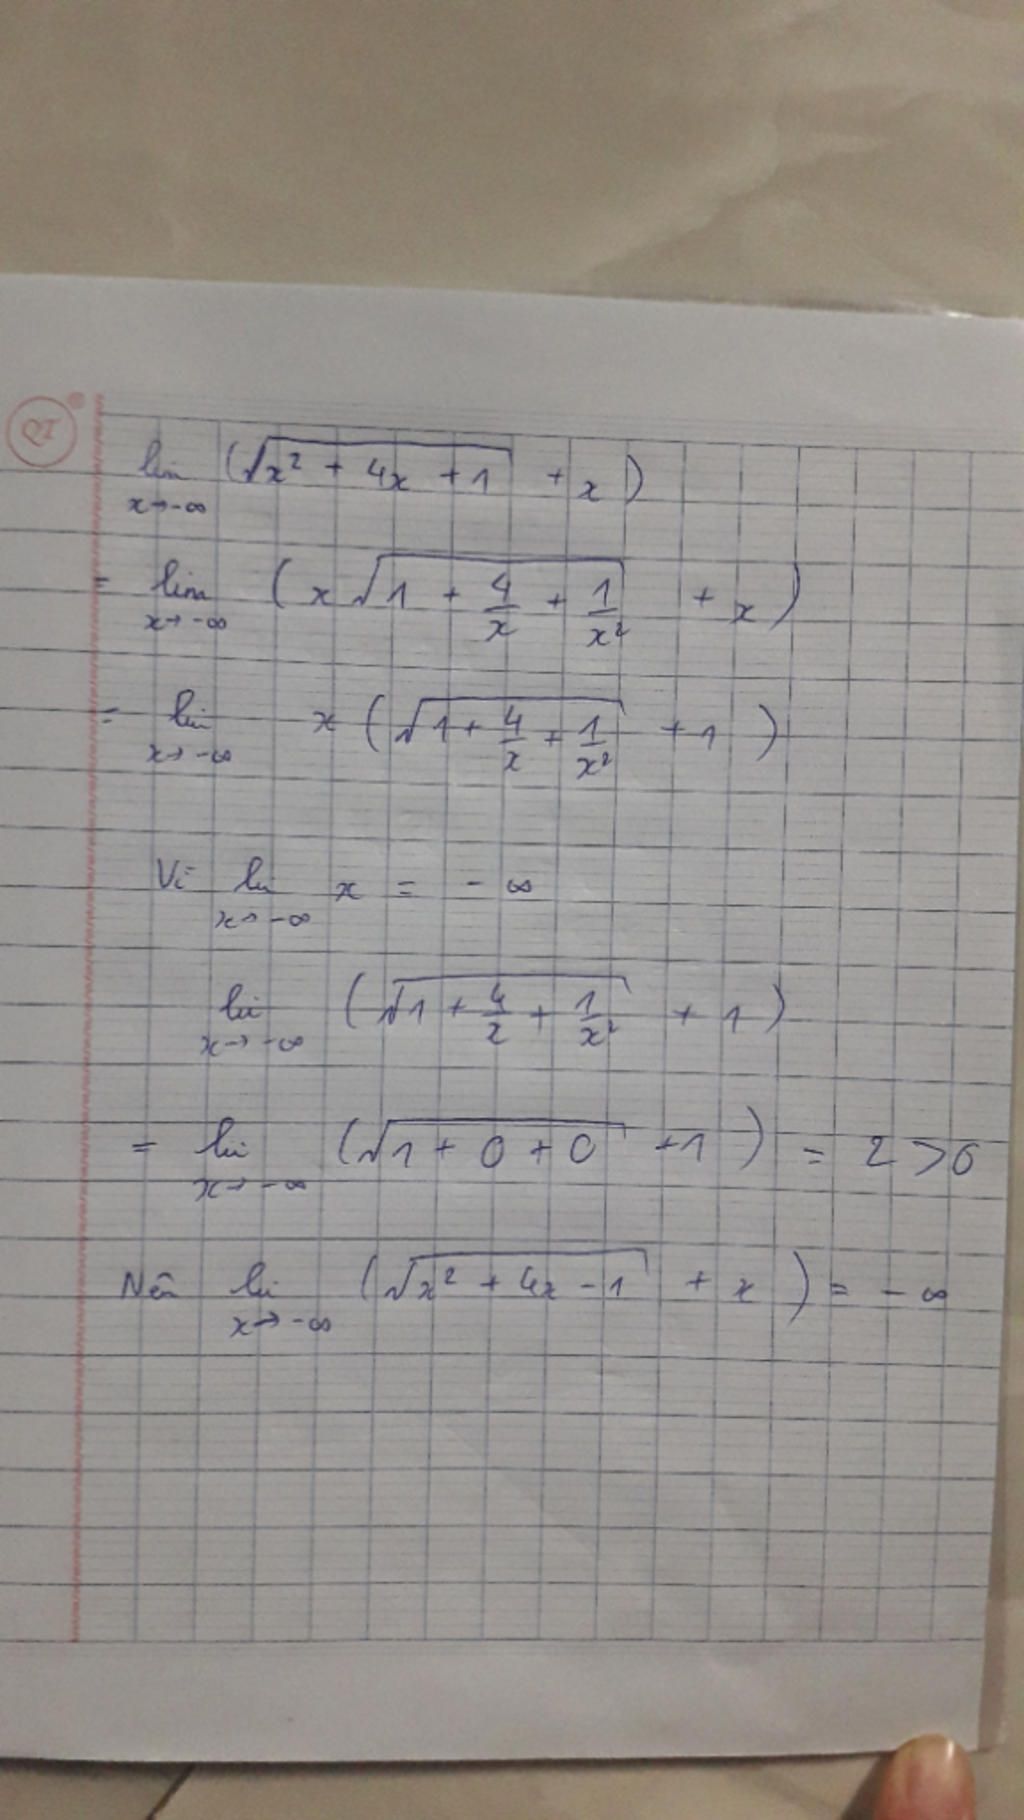 lim (√(x² + 4x + 1) + x)
x→-∞
= lim (x√(1 + 4/x + 1/x²) + x)
x→-∞
= lim x(√(1 + 4/x + 1/x²) + 1)
x→-∞
Vì lim x = -∞
x→-∞
lim (√(1 + 4/x + 1/x²) + 1)
x→-∞
= lim (√(1 + 0 + 0) + 1) = 2 > 0
x→-∞
Nên lim (√(x² + 4x - 1) + x) = -∞
x→-∞